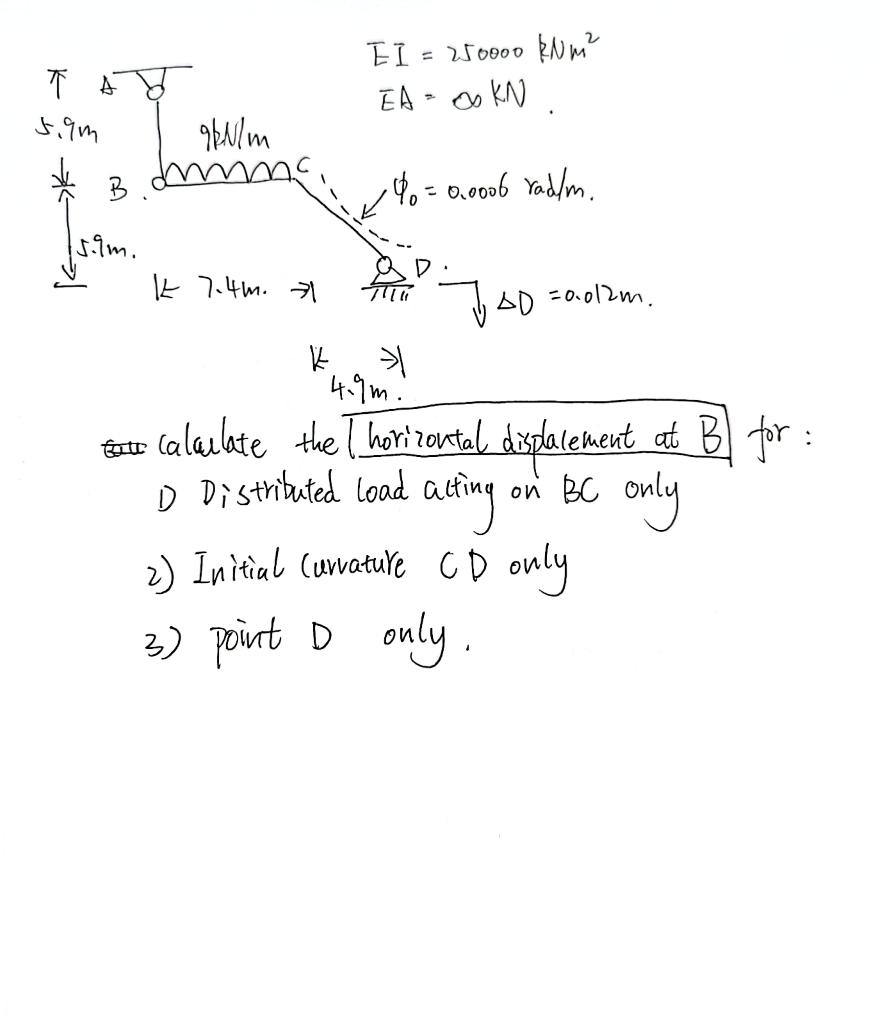 EI = 250000 kNm²
A
EA = ∞ KN.
5.9m
9kN/m
C
B.
φ₀ = 0.0006 rad/m.
5.9m.
D.
7.4m.
ΔD = 0.012m.
4.9m.
calculate the horizontal displacement at B for :
D Distributed load acting on BC only
2) Initial Curvature CD only
3) point D only.